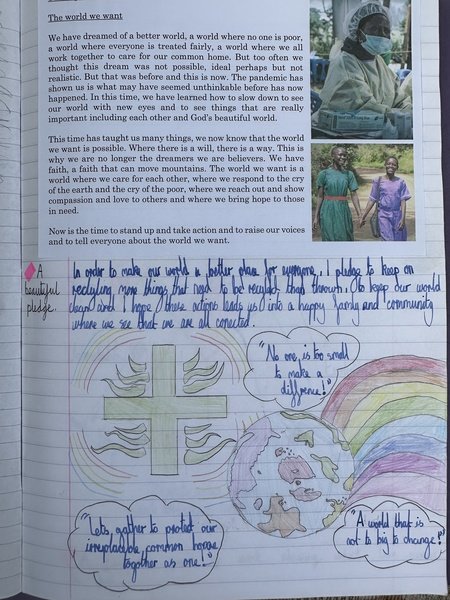 The world we want
We have dreamed of a better world, a world where no one is poor,
a world where everyone is treated fairly, a world where we all
work together to care for our common home. But too often we
thought this dream was not possible, ideal perhaps but not
realistic. But that was before and this is now. The pandemic has
shown us is what may have seemed unthinkable before has now
happened. In this time, we have learned how to slow down to see
our world with new eyes and to see things that are really
important including each other and God's beautiful world.
This time has taught us many things, we now know that the world
we want is possible. Where there is a will, there is a way. This is
why we are no longer the dreamers we are believers. We have
faith, a faith that can move mountains. The world we want is a
world where we care for each other, where we respond to the cry
of the earth and the cry of the poor, where we reach out and show
compassion and love to others and where we bring hope to those
in need.
Now is the time to stand up and take action and to raise our voices
and to tell everyone about the world we want.
A
beautiful
pledge.
In order to make our world a better place for everyone, I pledge to keep on
recylying more things that need to be recyled than thrown. To keep our world
clean and I hope these actions leads us into a happy family and community
where we see that we are all conected.
"No one, is too small
to make a
diffrence!"
"Lets, gather to protect our
irreplacible common home
together as one!"
"A world that is
not to big to change!"